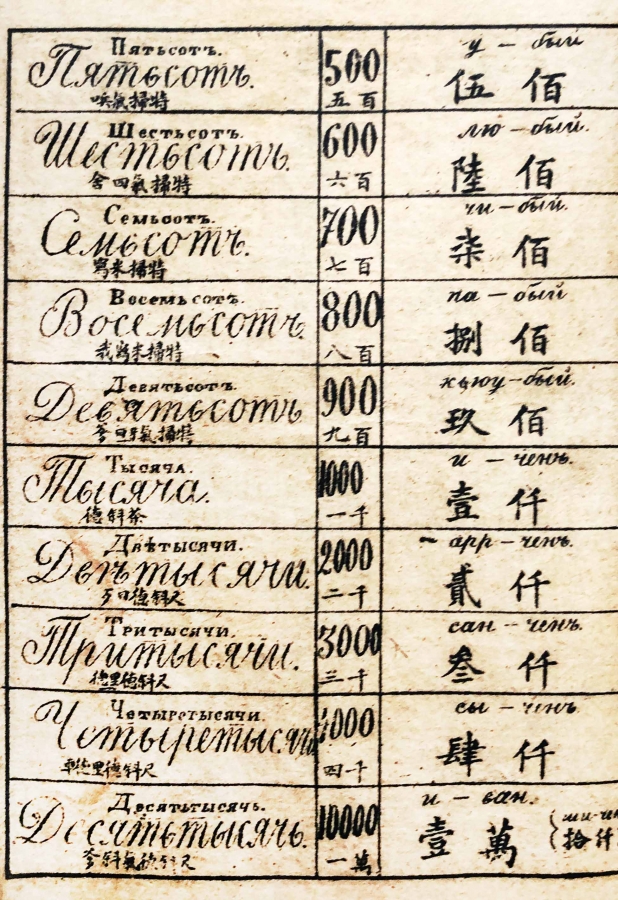 Пятьсотъ.
Пятьсотъ.
500
五百
у – бый
伍佰
Шестьсотъ.
Шестьсотъ.
舍四氣掃特
600
六百
лю – бый.
陸佰
Семьсотъ.
Семьсотъ.
寫米掃特
700
七百
чи – бый.
柒佰
Восемьсотъ.
Восемьсотъ.
我寫米掃特
800
八百
па – бый
捌佰
Девятьсотъ.
Девятьсотъ
900
九百
кьюу – бый.
玖佰
Тысяча.
Тысяча.
德斜茶
1000
一千
и – ченъ.
壹仟
Двѣтысячи.
Двѣтысячи.
歹曰德斜尺
2000
二千
арр – ченъ.
貳仟
Тритысячи.
Тритысячи.
德里德斜尺
3000
三千
сан – ченъ.
叁仟
Четыретысячи.
Четыретысячи
4000
四千
сы – ченъ
肆仟
Десятьтысячь.
Десятьтысячь.
10000
一萬
и – ван.
壹萬
拾仟